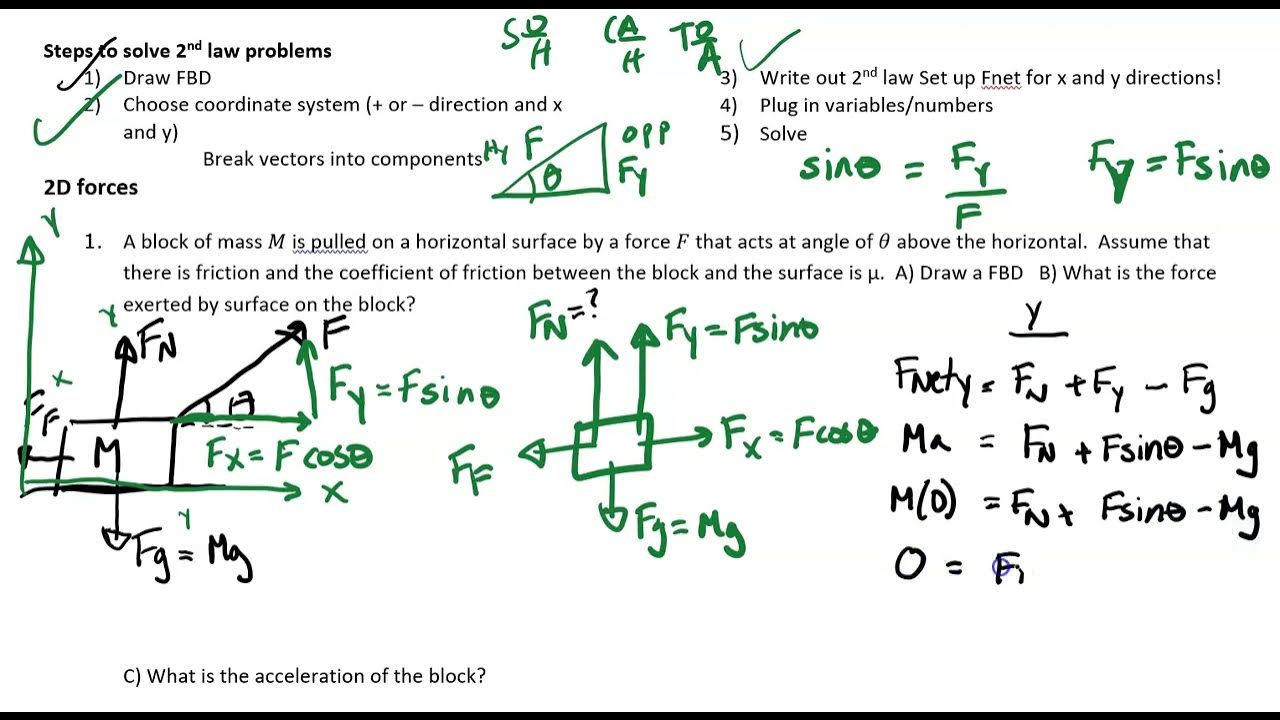 Steps to solve 2nd law problems
1) Draw FBD
2) Choose coordinate system (+ or – direction and x
and y)
Break vectors into components
SO/H CA/H TO/A
3) Write out 2nd law Set up Fnet for x and y directions!
4) Plug in variables/numbers
5) Solve
Hy F θ OPP Fy
sinθ = Fy/F Fy = Fsinθ
2D forces
1. A block of mass M is pulled on a horizontal surface by a force F that acts at angle of θ above the horizontal. Assume that
there is friction and the coefficient of friction between the block and the surface is μ. A) Draw a FBD B) What is the force
exerted by surface on the block?
Y
Y
FN
F
X
FF
θ
Fy = Fsinθ
M
Fx = Fcosθ
X
Y
Fg = Mg
FN = ?
Fy = Fsinθ
FF
Fx = Fcosθ
Fg = Mg
Y
FNety = FN + Fy – Fg
Ma = FN + Fsinθ – Mg
M(0) = FN + Fsinθ – Mg
0 =
C) What is the acceleration of the block?